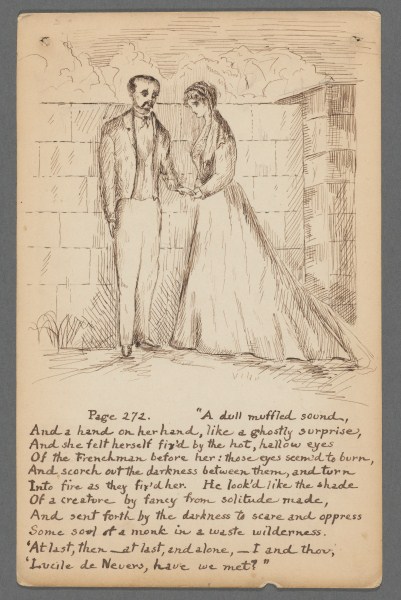 Page 272. "A dull muffled sound,
And a hand on her hand, like a ghostly surprise,
And she felt herself fix'd by the hot, hallow eyes
Of the Frenchman before her: those eyes seem'd to burn,
And scorch out the darkness between them, and turn
Into fire as they fix'd her. He look'd like the shade
Of a creature by fancy from solitude made,
And sent forth by the darkness to scare and oppress
Some sorl of a monk in a waste wilderness.
'At last, then — at last, and alone, — I and thou,
'Lucile de Nevers, have we met?"